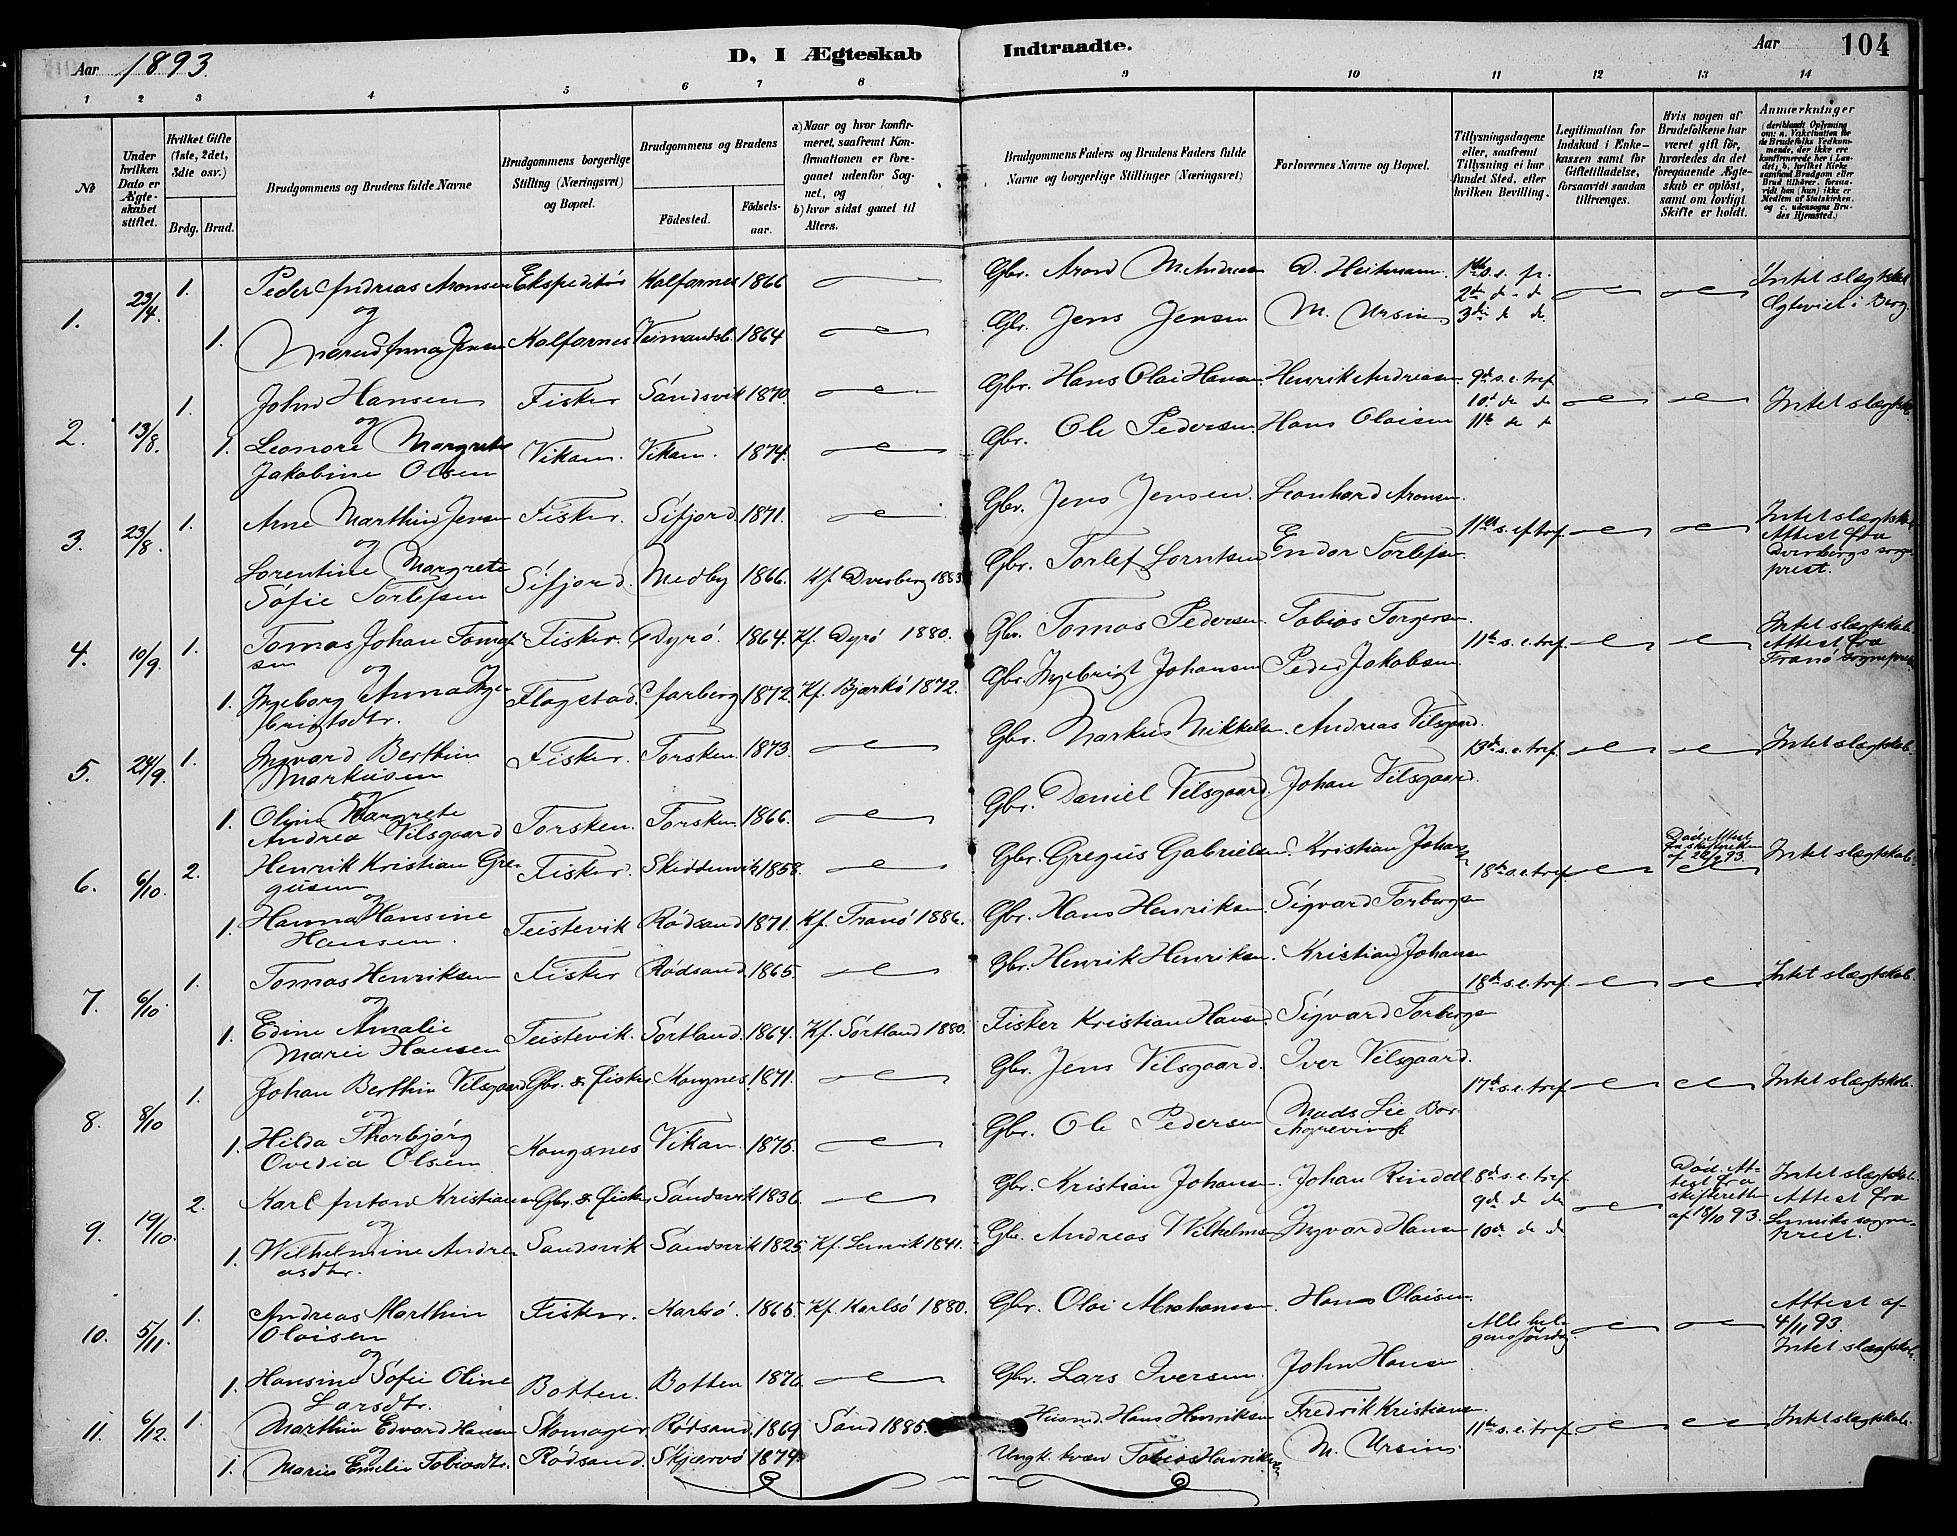 Aar 1893.
D, I Ægteskab Indtraadte.
Aar 104
1 2 3 4 5 6 7 8 9 10 11 12 13 14
No
Under hvilken Dato er Ægteskabet stiftet.
Hvilket Gifte (1ste, 2det, 3die osv.)
Brdg. Brud.
Brudgommens og Brudens fulde Navne
Brudgommens borgerlige Stilling (Næringsvei) og Bopæl.
Brudgommens og Brudens
Fødested.
Fødselsaar.
a) Naar og hvor konfirmeret, saafremt Konfirmationen er foregaaet udenfor Sognet, og
b) hvor sidst gaaet til Alters.
Brudgommens Faders og Brudens Faders fulde Navne og borgerlige Stillinger (Næringsvei)
Forlovernes Navne og Bopæl.
Tillysningsdagene eller, saafremt Tillysning ei har fundet Sted, efter hvilken Bevilling.
Legitimation for Indskud i Enkekassen samt for Giftetilladelse, forsaavidt saadan tiltrænges.
Hvis nogen af Brudefolkene har været gift før, hvorledes da det foregaaende Ægteskab er opløst, samt om lovligt Skifte er holdt.
Anmærkninger
(deriblandt Oplysning om: a. Vakcination for de Brudefolks Vedkommende, der ikke ere konfirmerede her i Landet; b. hvilket Kirkesamfund Brudgom eller Brud tilhører, forsaavidt han (hun) ikke er Medlem af Statskirken, og c. udensogns Brudes Hjemsted.)
1. 23/4. 1. Peder Andreas Aronsen Ekspeditør Kalfarnes 1866 Gbr. Aron M. Andreasen D. Heitmann. 1ste s. e. p. Intet slægtskab
og 2den d - d Egteviet i Berg.
1. Jensen Kalfarnes 1864 Gbr. Jens Jensen M. Ursin 3die d d.
2. 13/8. 1. John Hansen Fisker Sandsvik 1870. Gbr. Hans Olai Hansen Henrik Andreasen 9de s. e. tref. Intet slægtsk.
og 10de d d
1. Leonore Margrete Vikan. Vikan. 1874. Gbr. Ole Pedersen. Hans Olaisen 11te d d
Jakobine Olsen
3. 23/8. 1. Arne Marthin Jensen Fisker. Sifjord. 1871. Gbr. Jens Jensen. Leonhard Aronsen. 11te s. ef tref. Intet slægtskab
og Attest fra
Lorentine Margrete Sifjord. Medby 1866. Kf. Dverberg 1883 Gbr. Torlef Lorntsen Endor Torlefsen Dverbergs sogne
Sofie Torlefsen prest.
4. 10/9. 1. Tomas Johan Tomas Fisker. Dyrø. 1864. Kf. Dyrø 1880. Gbr. Tomas Pedersen Tobias Torgersen 11te s. e. tref. Intet slægtskab.
sen og Attest fra
1. Ingeborg Anna Inge Flagstad. 1872. Kf. Bjarkø 1872. Gbr. Ingebrigt Johansen Peder Jakobsen Tranø sognepre
brigtsdtr.
5. 24/9. 1. Ingvard Berthin Fisker. Torsken. 1873. Gbr. Markus Mikkelsen. Andreas Vilsgaard. 13de s. e. tref. Intet slægtskab.
Markusen
og
1. Oline Margrete Torsken. Torsken. 1866. Gbr. Daniel Vilsgaard. Johan Vilsgaard.
Andrea Vilsgaard
6. 6/10. 2. Henrik Kristian Gre Fisker. 1858. Gbr. Gregus Gabrielsen. Kristian Johan 18de s. e. tref. Død. Attest Intet slægtskab.
gusen fra skifteretten
og
1. Hanna Hansine Teistevik Rødsand 1871. Kf. Tranø 1886. Gbr. Hans Henriksen. Sigvard Torbergsen
Hansen.
7. 6/10. 1. Tomas Henriksen Fisker Rødsand. 1865 Gbr. Henrik Henriksen. Kristian Johansen 18de s. e. tref. Intet slægtskab.
og
1. Edine Amalie Teistevik. Sortland. 1864. Kf. Sortland 1880. Fisker Kristian Hansen. Sigvard Torbergsen
Marie Hansen
8. 8/10 1. Johan Berthin Vilsgaard Gbr. & fisker Kongsnes. 1871. Gbr. Jens Vilsgaard. Iver Vilsgaard. 17de s. e. tref. Intet slægtskab.
og
1. Hilda Thorbjørg Kongsnes Vikan 1875. Gbr. Ole Pedersen Mads Lie
Ovedia Olsen.
9. 19/10. 2. Karl Anton Kristiansen Gbr. & fisker Sandsvik 1836. Gbr. Kristian Johansen. Johan Rindell 8de s. e. tref. Død. At- Intet slægtskab.
og 9de d d test fra Attest fra
1. Wilhelmine Andre Sandsvik Sandsvik 1825 Kf. Lenvik 1841. Gbr. Andreas Wilhelmsen Ingvard Hansen 10de d d skifteretten Lenviks sogne-
asdtr. af 18/10 93. prest.
10. 5/11. 1. Andreas Marthin Fisker. Karlsø. 1865. Kf. Karlsø 1880. Gbr. Olai Abrahamsen. Hans Olaisen. Alle hel- Attest af
Olaisen gensøndag 4/11 93.
og Intet slægtskab.
1. Hansine Sofie Oline Botten. Botten 1876. Gbr. Lars Iversen. John Hansen
Larsdtr.
11. 6/12. 1. Marthin Edvard Hansen Skomager Rødsand 1869 Sand 1885. Husmd. Hans Henriksen Fredrik Kristiansen 11te s. e. tref. Intet slægtskab.
og
1. Marie Emelie Tobiasdtr. Rødsand Skjærvø 1874 Ungk. kvæn Tobias Henriksen M. Ursin.